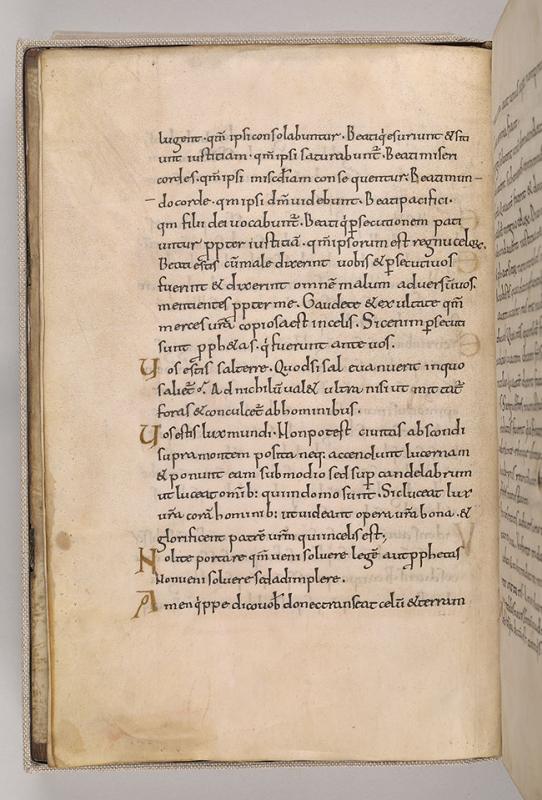 lugent · qm̄ ipsi consolabuntur · Beati q̇ esuriunt & siti
unt iustitiam · qm̄ ipsi saturabunt᷑ · Beati miseri
cordes · qm̄ ipsi miscđiam consequentur · Beati mun–
– do corde · qm̄ ipsi dm̄ uidebunt · Beati pacifici ·
qm̄ filii dei uocabunt᷑ · Beati q̇ ꝑsecutionem pati
untur ꝓpter iustitiā · qm̄ ipsorum est regnū celoꝝ ·
Beati estis cū male dixerint uobis & ꝑsecuti uos
fuerint & dixerint omnē malum aduersū uos ·
mentientes ꝓpter me · Gaudete & exultate qm̄
merces ur̄a copiosa est in celis · Sic enim ꝑsecuti
sunt ꝓph&as · q̇ fuerunt ante uos ·
Uos estis sal terre · Quod si sal euanuerit in quo
saliet᷑ · Ad nichilū ual& ultra nisi ut mitatat᷑
foras & conculcet᷑ ab hominibus ·
Uos estis lux mundi · Non potest ciuitas abscondi
supra montem posita neq; accendunt lucernam
& ponunt eam sub modio sed suꝑ candelabrum
ut luceat omīb: qui in domo sunt · Sic luceat lux
ur̄a corā hominib: ut uideant opera ur̄a bona · &
glorificent patrē ur̄m qui in celis est ·,
Nolite portare qm̄ ueni soluere legē aut ꝓphetas
Non ueni soluere sed adimplere ·
Amen q̇ppe dico uob̄ donec transeat celū & terram